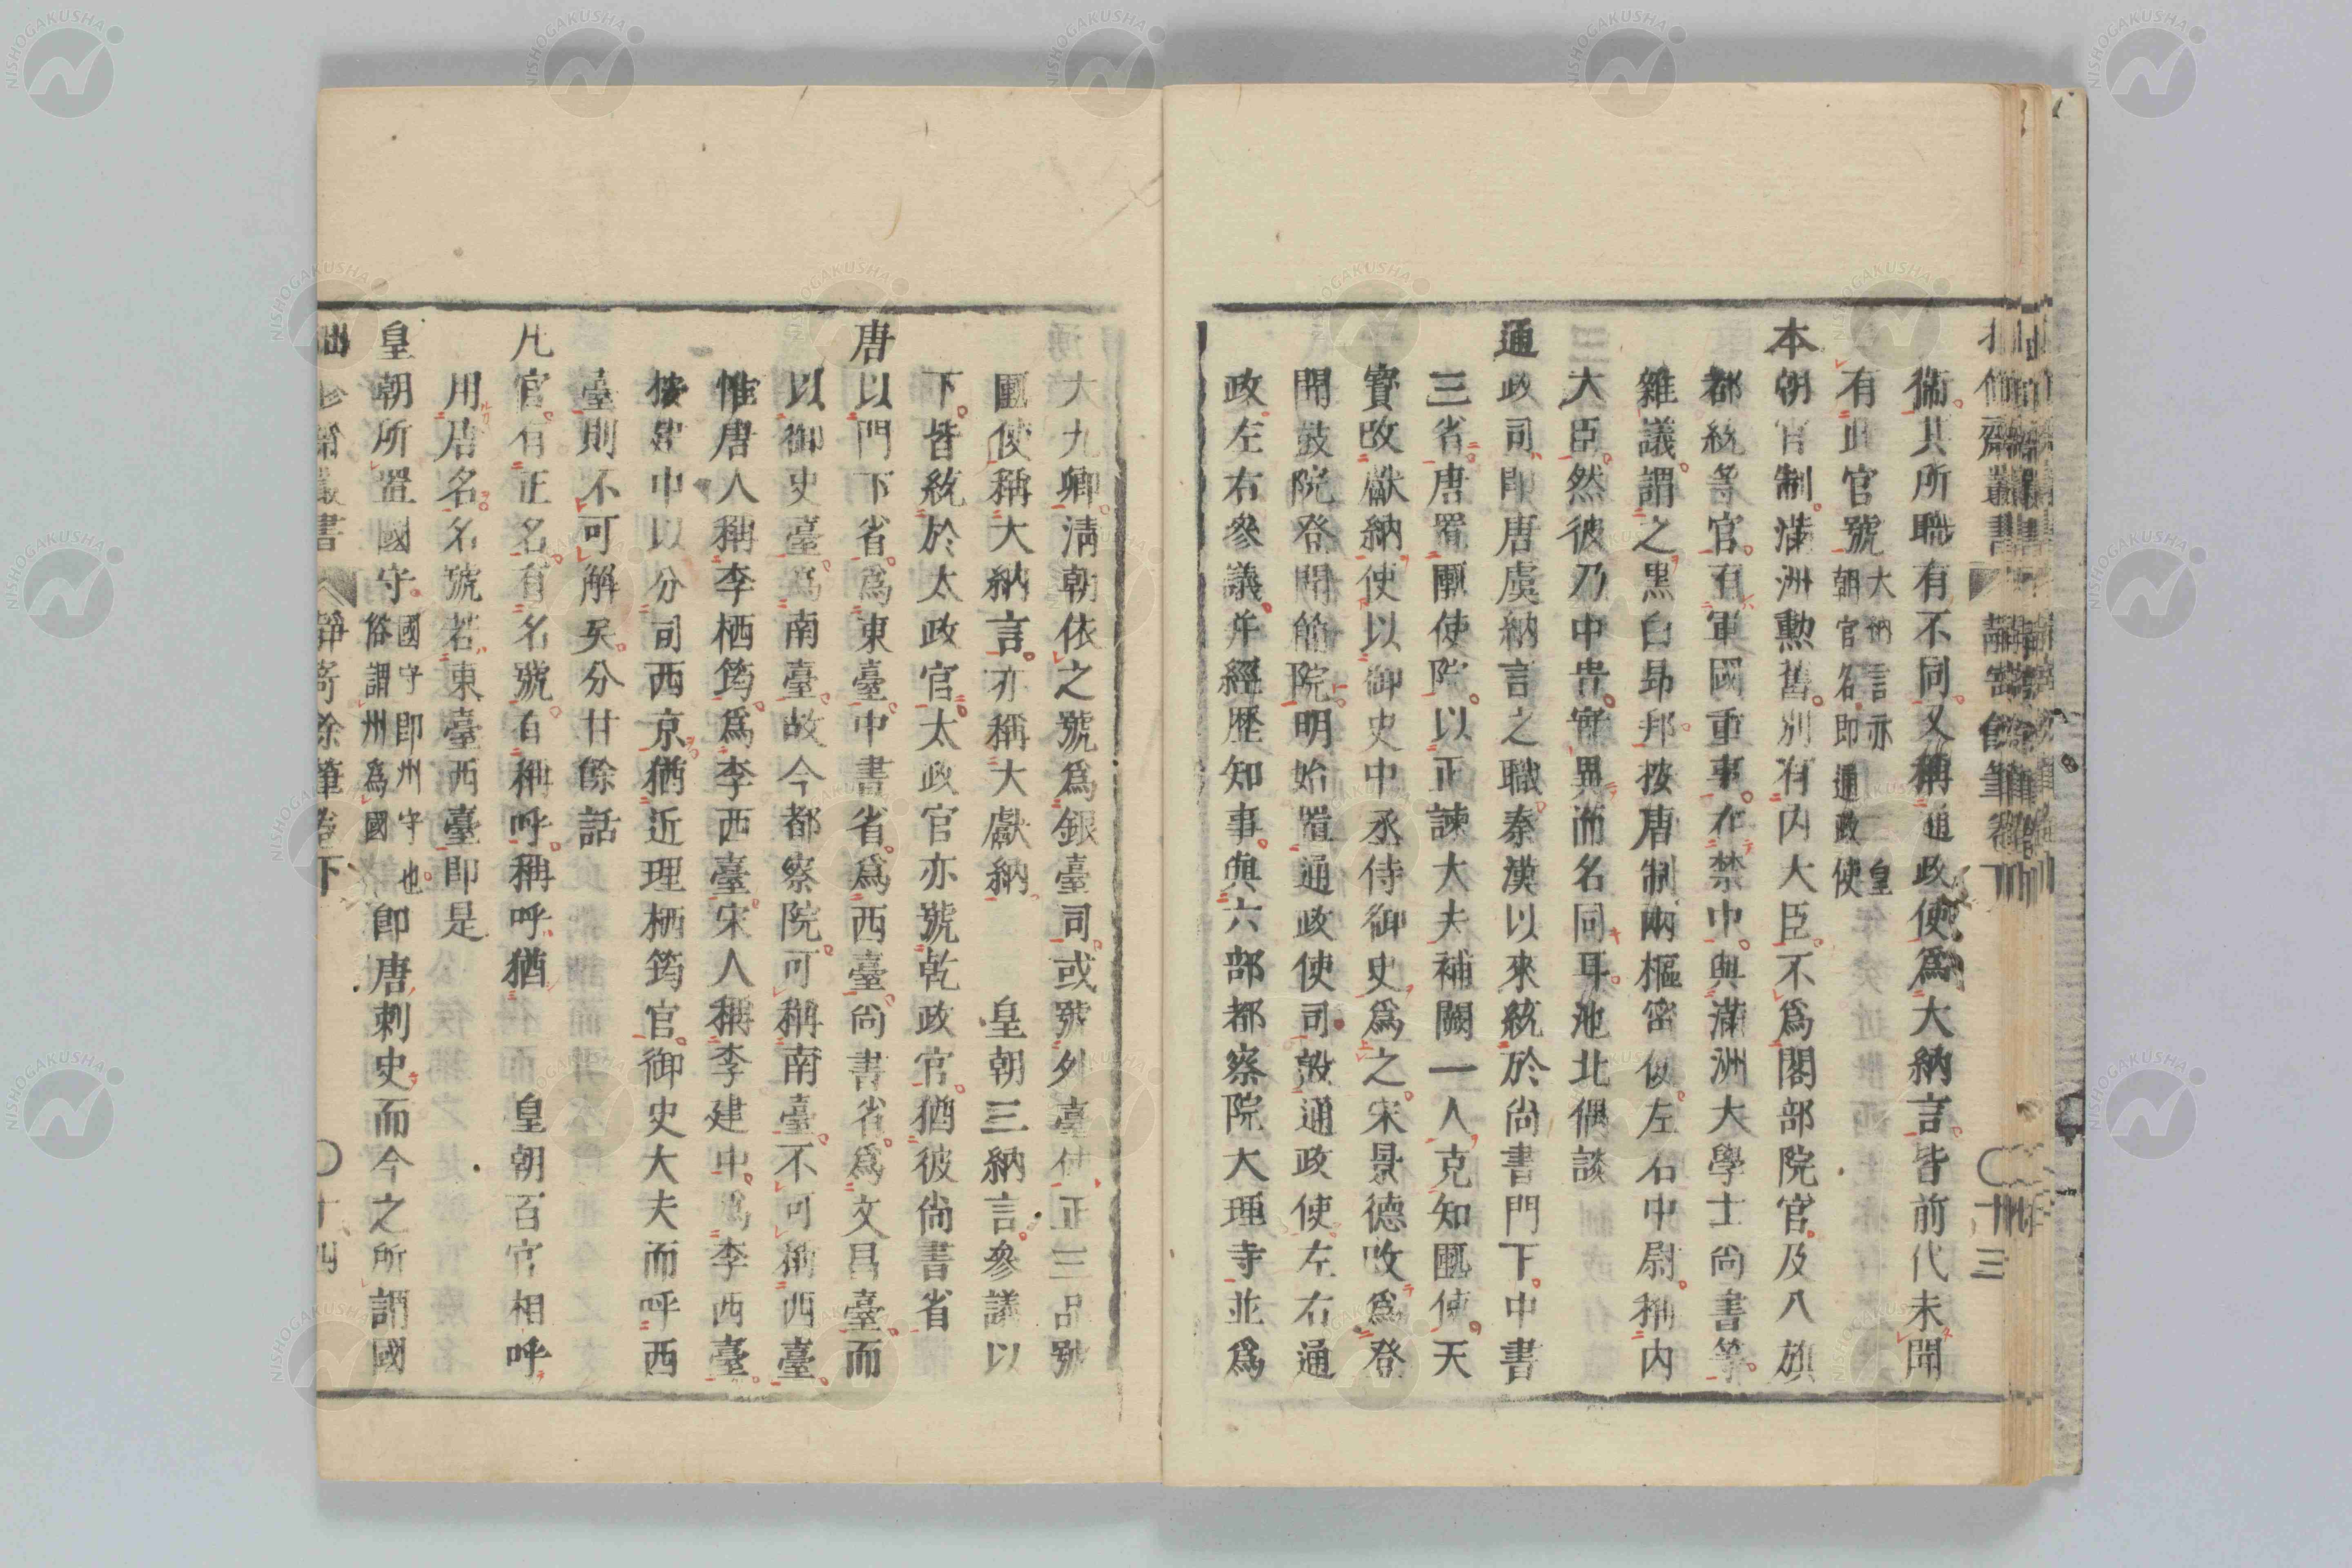 衞其所職有不同又稱通政使爲大納言皆前代未聞
有此官號大納言亦皇朝官名即通政使
本朝官制滿洲勲舊別有内大臣不爲閣部院官及八旗
都統等官有軍國重事在禁中與滿洲大學士尚書等
雜議謂之黑白昂邦按唐制兩樞密使左右中尉稱内
大臣然彼乃中貴實異而名同耳池北偶談
通政司即唐虞納言之職秦漢以來統於尚書門下中書
三省唐置匭使院以正諫大夫補闕一人克知匭使天
寶改獻納使以御史中丞侍御史爲之宋景德改爲登
聞鼓院登聞簡院明始置通政使司設通政使左右通
政左右參議并經歴知事與六部都察院大理寺並爲
大九卿清朝依之號爲銀臺司或號外臺使正三品號
匭使稱大納言亦稱大獻納 皇朝三納言參議以
下皆統於太政官太政官亦號乾政官猶彼尚書省
唐以門下省爲東臺中書省爲西臺尚書省爲文昌臺而
以御史臺爲南臺故今都察院可稱南臺不可稱西臺
惟唐人稱李栖筠爲李西臺宋人稱李建中爲李西臺
按建中以分司西京猶近理栖筠官御史大夫而呼西
臺則不可解矣分甘餘話
凡官有正名有名號有稱呼稱呼猶 皇朝百官相呼
用唐名名號若東臺西臺即是
皇朝所置國守國守即州守也俗謂州爲國即唐刺史而今之所謂國
十三
十四